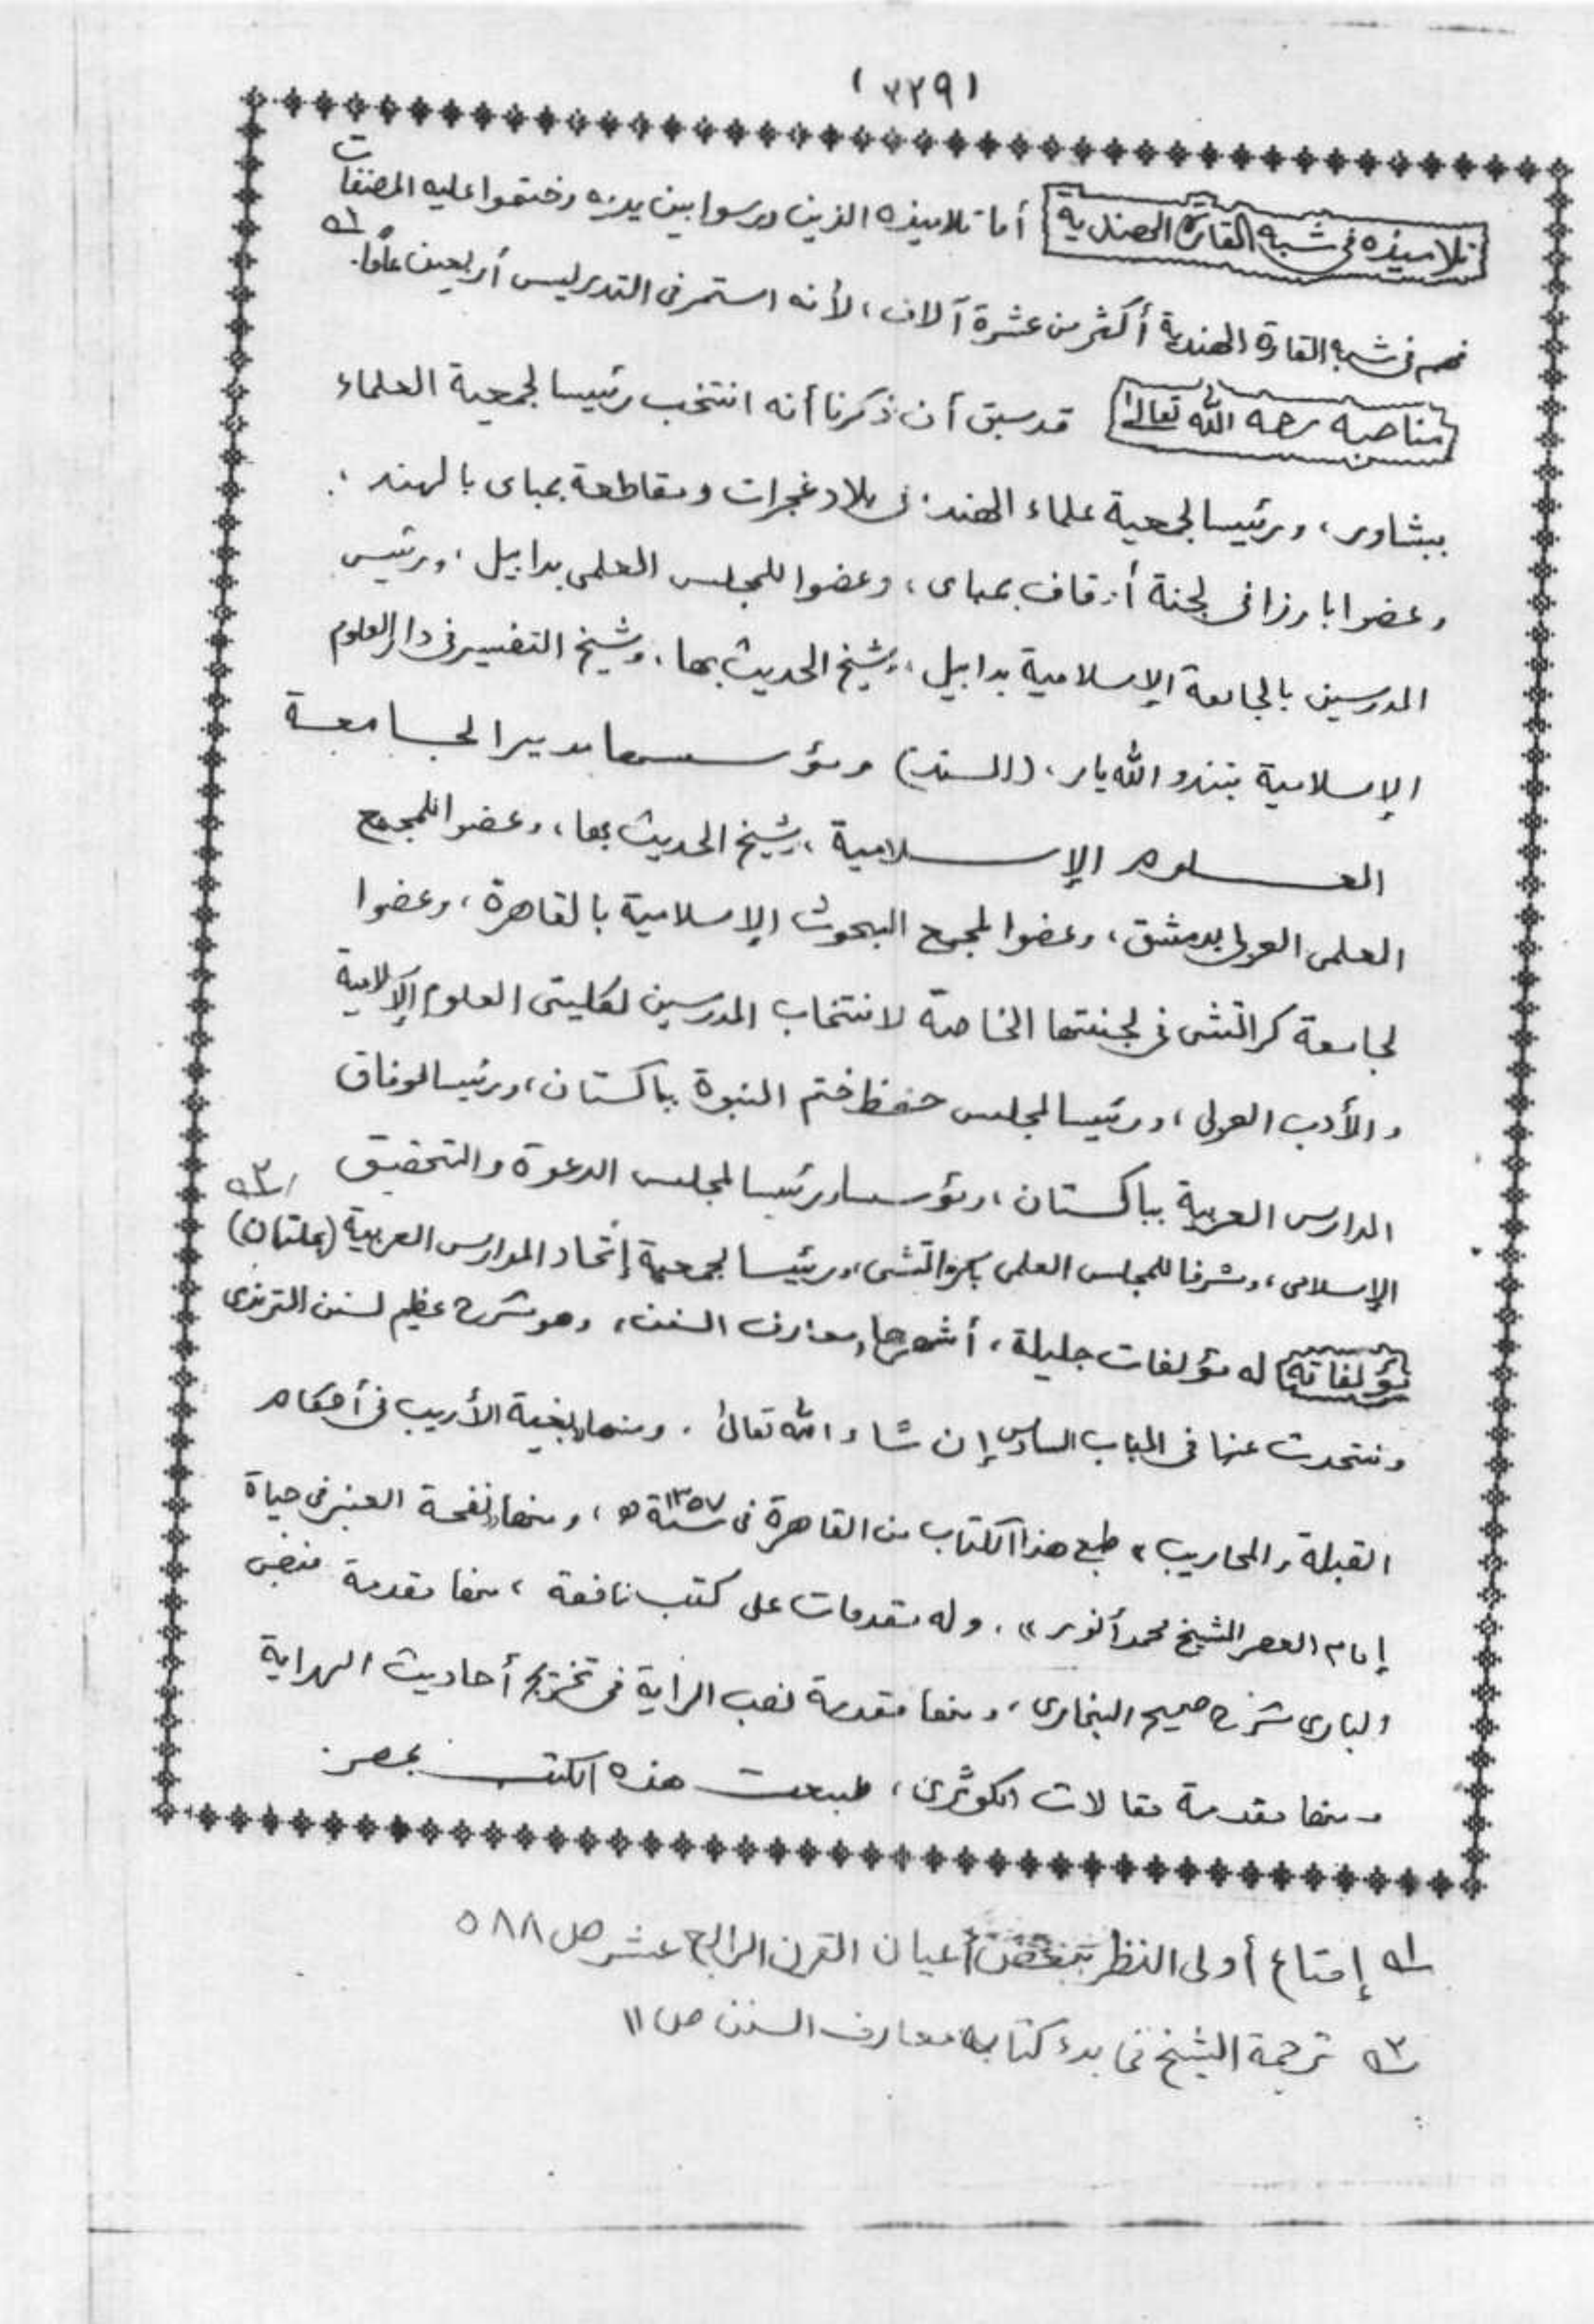 (٣٢٩)
تلاميذه فى شبه القارة الهندية أما تلاميذه الذين درسوا بين يديه وختموا عليه المصنفات
فهم فى شبه القارة الهندية أكثر من عشرة آلاف، لأنه استمر فى التدريس أربعين عاما. ١ه
مناصبه رحمه الله تعالى قد سبق أن ذكرنا أنه انتخب رئيسا لجمعية العلماء
ببشاور، ورئيسا لجمعية علماء الهند فى بلاد غجرات ومقاطعة بمباى بالهند،
وعضوا بارزا فى لجنة أوقاف بمباى، وعضوا للمجلس العلمى بدابيل، ورئيس
المدرسين بالجامعة الإسلامية بدابيل، وشيخ الحديث بها، وشيخ التفسير فى دار العلوم
الإسلامية بتندو الله يار، (السند) ومؤسسا مديرا لجامعة
العلوم الإسلامية، وشيخ الحديث بها، وعضوا للمجمع
العلمى العربى بدمشق، وعضوا لمجمع البحوث الإسلامية بالقاهرة، وعضوا
لجامعة كراتشى فى لجنتها الخاصة لانتخاب المدرسين لكليتى العلوم الإسلامية
والأدب العربى، ورئيسا لمجلس حفظ ختم النبوة بباكستان، ورئيسا لوفاق
المدارس العربية بباكستان، ومؤسسا ورئيسا لمجلس الدعوة والتحقيق
الإسلامى، ومشرفا للمجلس العلمى بكراتشى، ورئيسا لجمعية إتحاد المدارس العربية (بملتان) ٢ه
مؤلفاته له مؤلفات جليلة، أشهرها معارف السنن، وهو شرح عظيم لسنن الترمذى
ونتحدث عنها فى الباب السادس إن شاء الله تعالى. ومنها بغية الأريب فى أحكام
القبلة والمحاريب» طبع هذا الكتاب من القاهرة فى سنة ١٣٥٧ه، ومنها نفحة العنبر فى حياة
إمام العصر الشيخ محمد أنور». وله مقدمات على كتب نافعة، منها مقدمة فيض
البارى شرح صحيح البخارى، ومنها مقدمة نصب الراية فى تخريج أحاديث الهداية
ومنها مقدمة مقالات الكوثرى، طبعت هذه الكتب بمصر.
١ه إمتاع أولى النظر أعيان القرن الرابع عشر ص ٥٨٨
٢ه ترجمة الشيخ فى بدء كتابه معارف السنن ص ١١